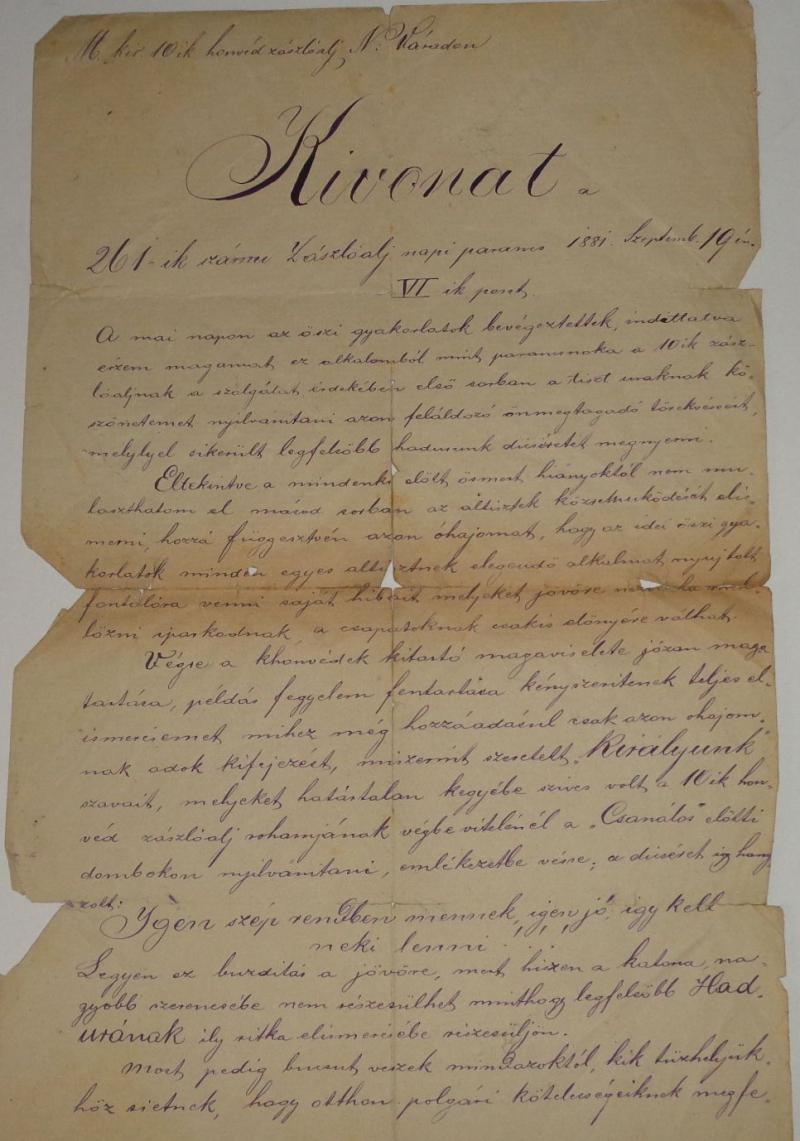 M. kir. 10ik honvéd zászlóalj N. Váradon
Kivonat a
261-ik számu Zászlóalj napi parancs 1881. Septemb. 19én.
VI ik pont.
A mai napon az őszi gyakorlatok bevégeztettek, indíttatva
érzem magamat ez alkalomból mint parancsnoka a 10ik zász-
lóaljnak a szolgálat érdekében első sorban a tiszt uraknak kö-
szönetemet nyilvánitani azon feláldozó önmegtagadó törekvéseért,
melylyel sikerült legfelsőbb hadurunk dicséretét megnyerni.
Eltekintve a mindenki előtt ösmert hiányoktól nem mu-
laszthatom el másod sorban az altisztek közremüködését elis-
merni, hozzá függesztvén azon óhajomat, hogy az idei őszi gya-
korlatok minden egyes altisztnek elegendő alkalmat nyujtott
fontolóra venni saját hibáit melyeket jövőre nézve ha
lőzni iparkodnak, a csapatoknak csakis előnyére válhat.
Végre a khonvédek kitartó magaviselete józan maga
tartása, példás fegyelem fentartása kényszeritenek teljes el-
ismerésemet mihez még hozzáadásul csak azon ohajom-
nak adok kifejezést, miszerint szeretett „Királyunk"
szavait, melyeket határtalan kegyébe szives volt a 10ik hon-
véd zászlóalj rohamjának végbevitelénél a „Csanálos" előtti
dombokon nyilvánitani, emlékezetbe vésse; a dicséret igy hang
zott:
Igen szép rendben mennek, igen jó, igy kell
neki lenni
Legyen ez buzditás a jövőre, mert hiszen a katona, na-
gyobb szerencsébe nem részesülhet minthogy legfelsőbb Had-
urának ily ritka elismerésébe részesüljön.
Most pedig bucsut veszek mindazoktól, kik tüzhelyük-
höz sietnek, hogy otthon polgári kötelességeiknek megfe-